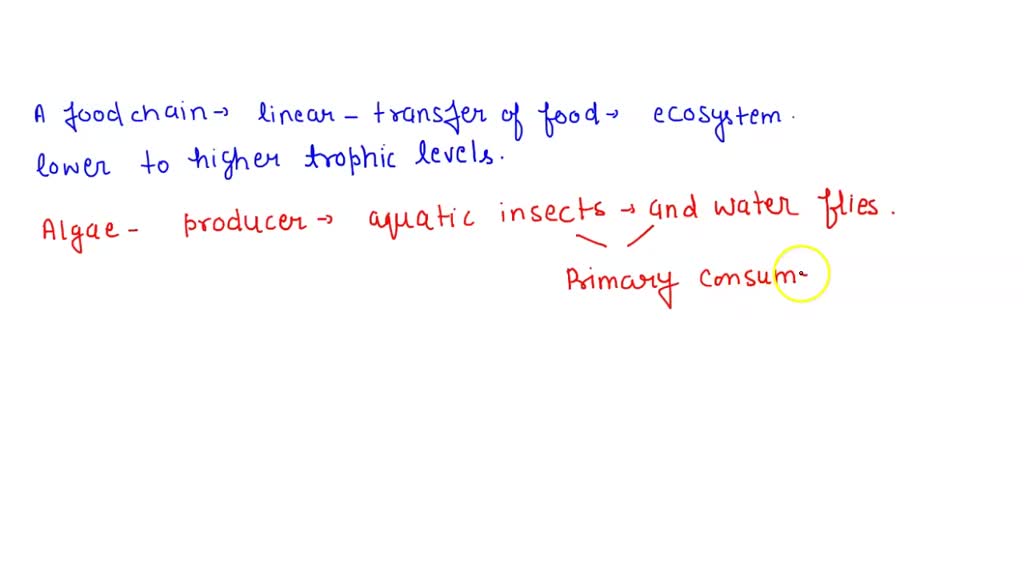 A food chain → linear - transfer of food → ecosystem.
lower to higher trophic levels.
Algae - producer → aquatic insects → and water flies.
Primary consum